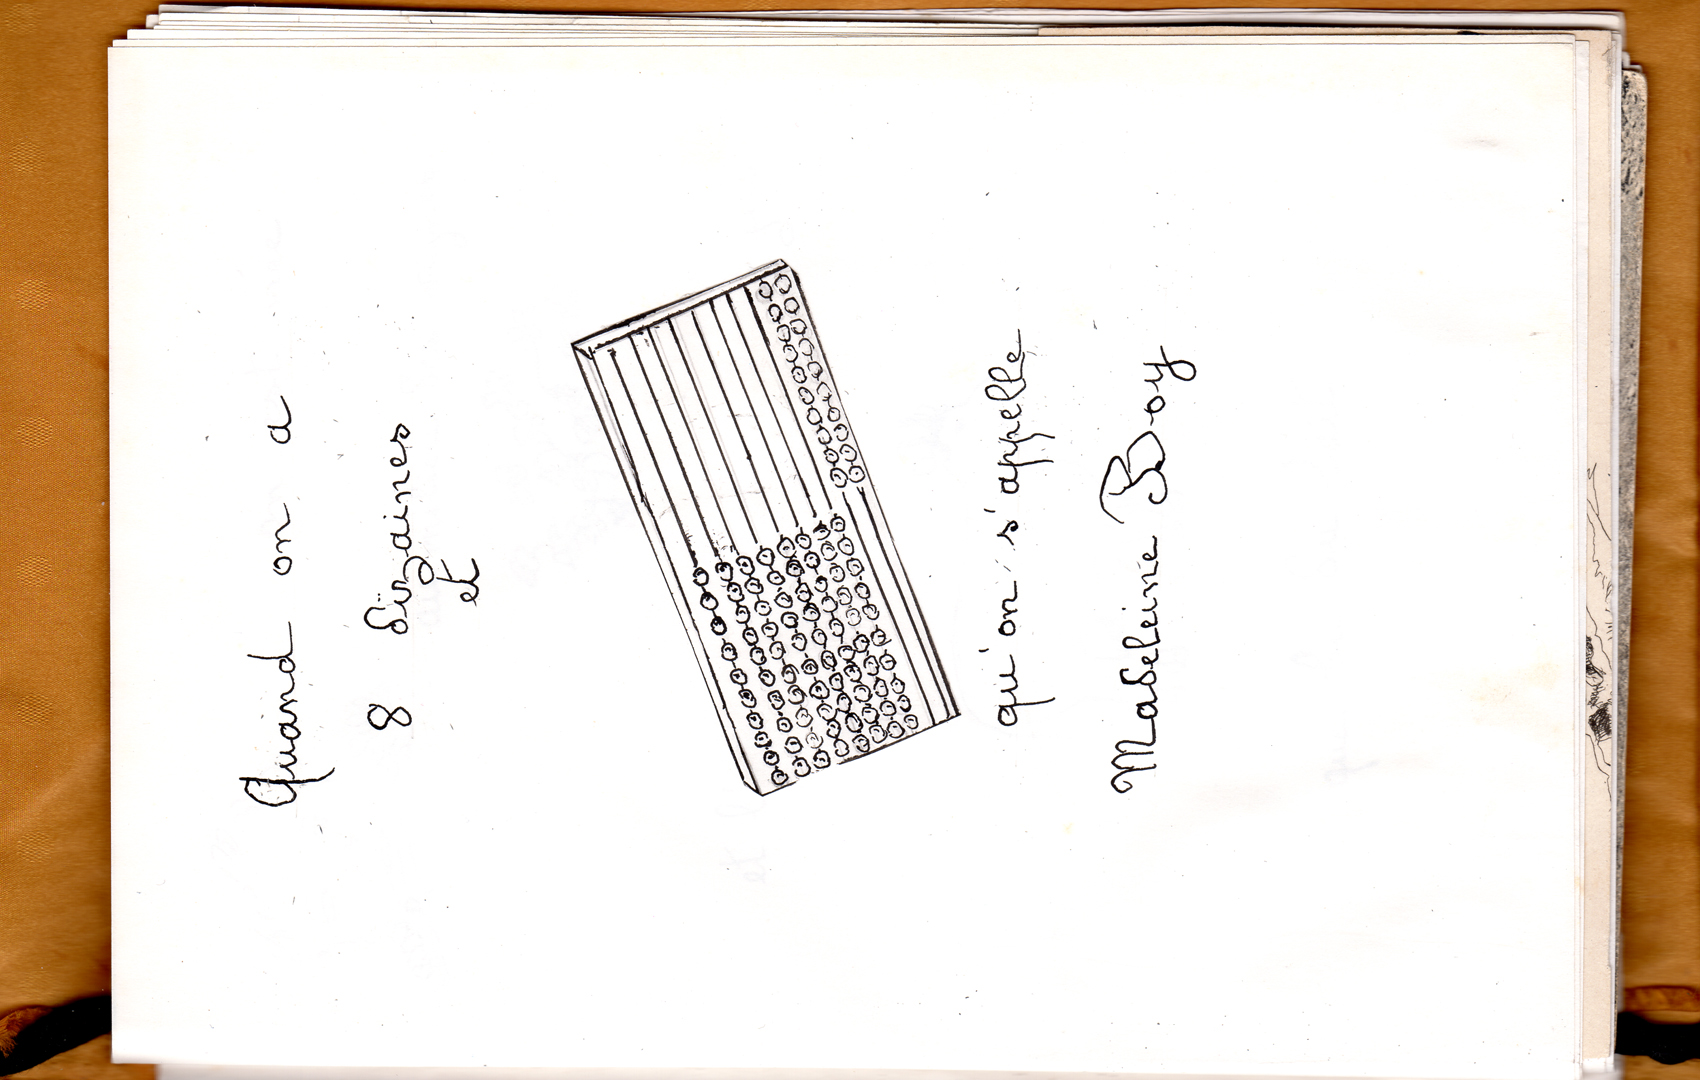 Quand on a
8 dizaines
et
qu'on s'appelle
Madeleine Boy